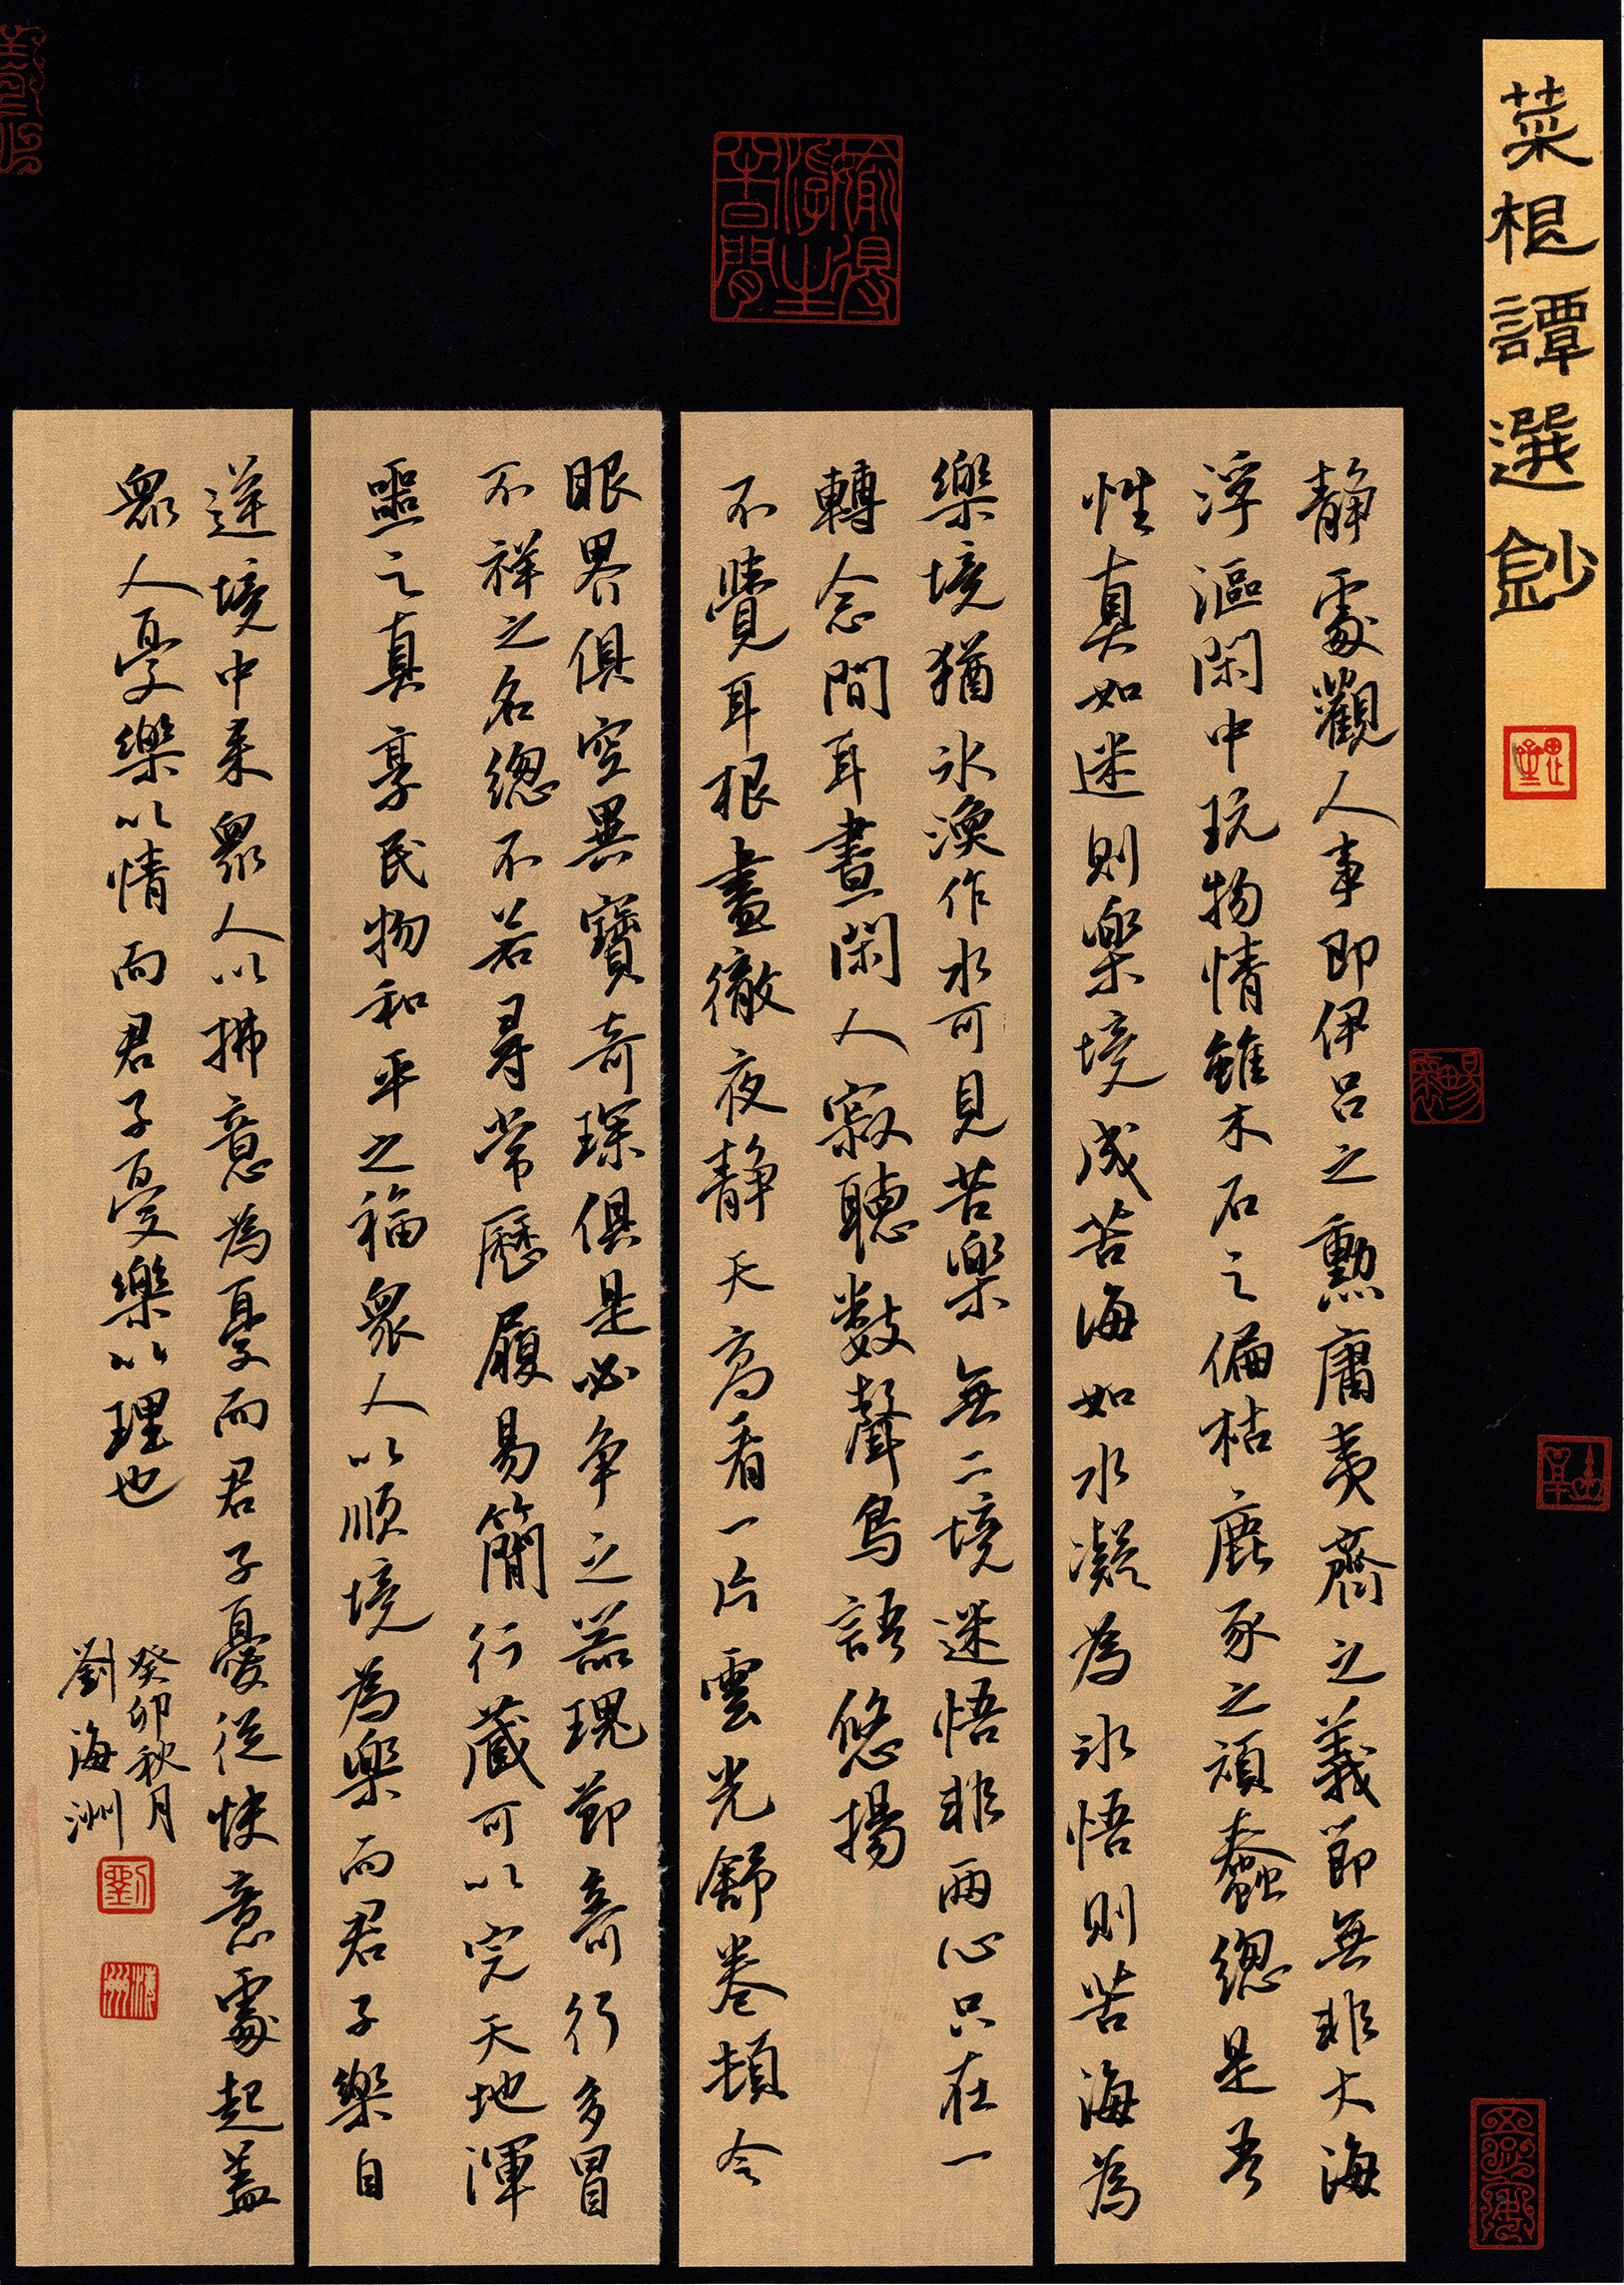 菜根譚選鈔
静處觀人事即伊呂之勳庸夷齊之義節無非大海
浮漚閑中玩物情雖木石之偏枯鹿豕之頑蠢總是吾
性真如迷則樂境成苦海如水凝為冰悟則苦海為
樂境猶冰渙作水可見苦樂無二境迷悟非兩心只在一
轉念間耳晝閑人寂聽數聲鳥語悠揚
不覺耳根盡徹夜静天高看一片雲光舒卷頓令
眼界俱空異寶奇琛俱是必争之器瑰節奇行多冒
不祥之名總不若尋常歷履易簡行藏可以完天地渾
噩之真享民物和平之福眾人以順境為樂而君子樂自
逆境中来眾人以拂意為憂而君子憂從快意處起蓋
眾人憂樂以情而君子憂樂以理也
癸卯秋月
劉海洲
劉
海洲